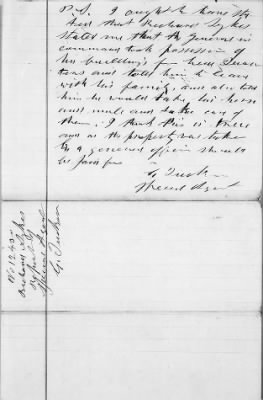 P.S. I ought to have
that Richard Sykes
states me that the General in
command took possession of
his buildings for head Quar
ters and told him to leave
with his family, and also told
him he would take his horse
and mule and take care of
them. I think this is
and as the property was taken
by a general officer should
be paid for
G. Tucker
Special Agent
No 1243
Richard Sykes
Report of
Special Agent
G. Tucker